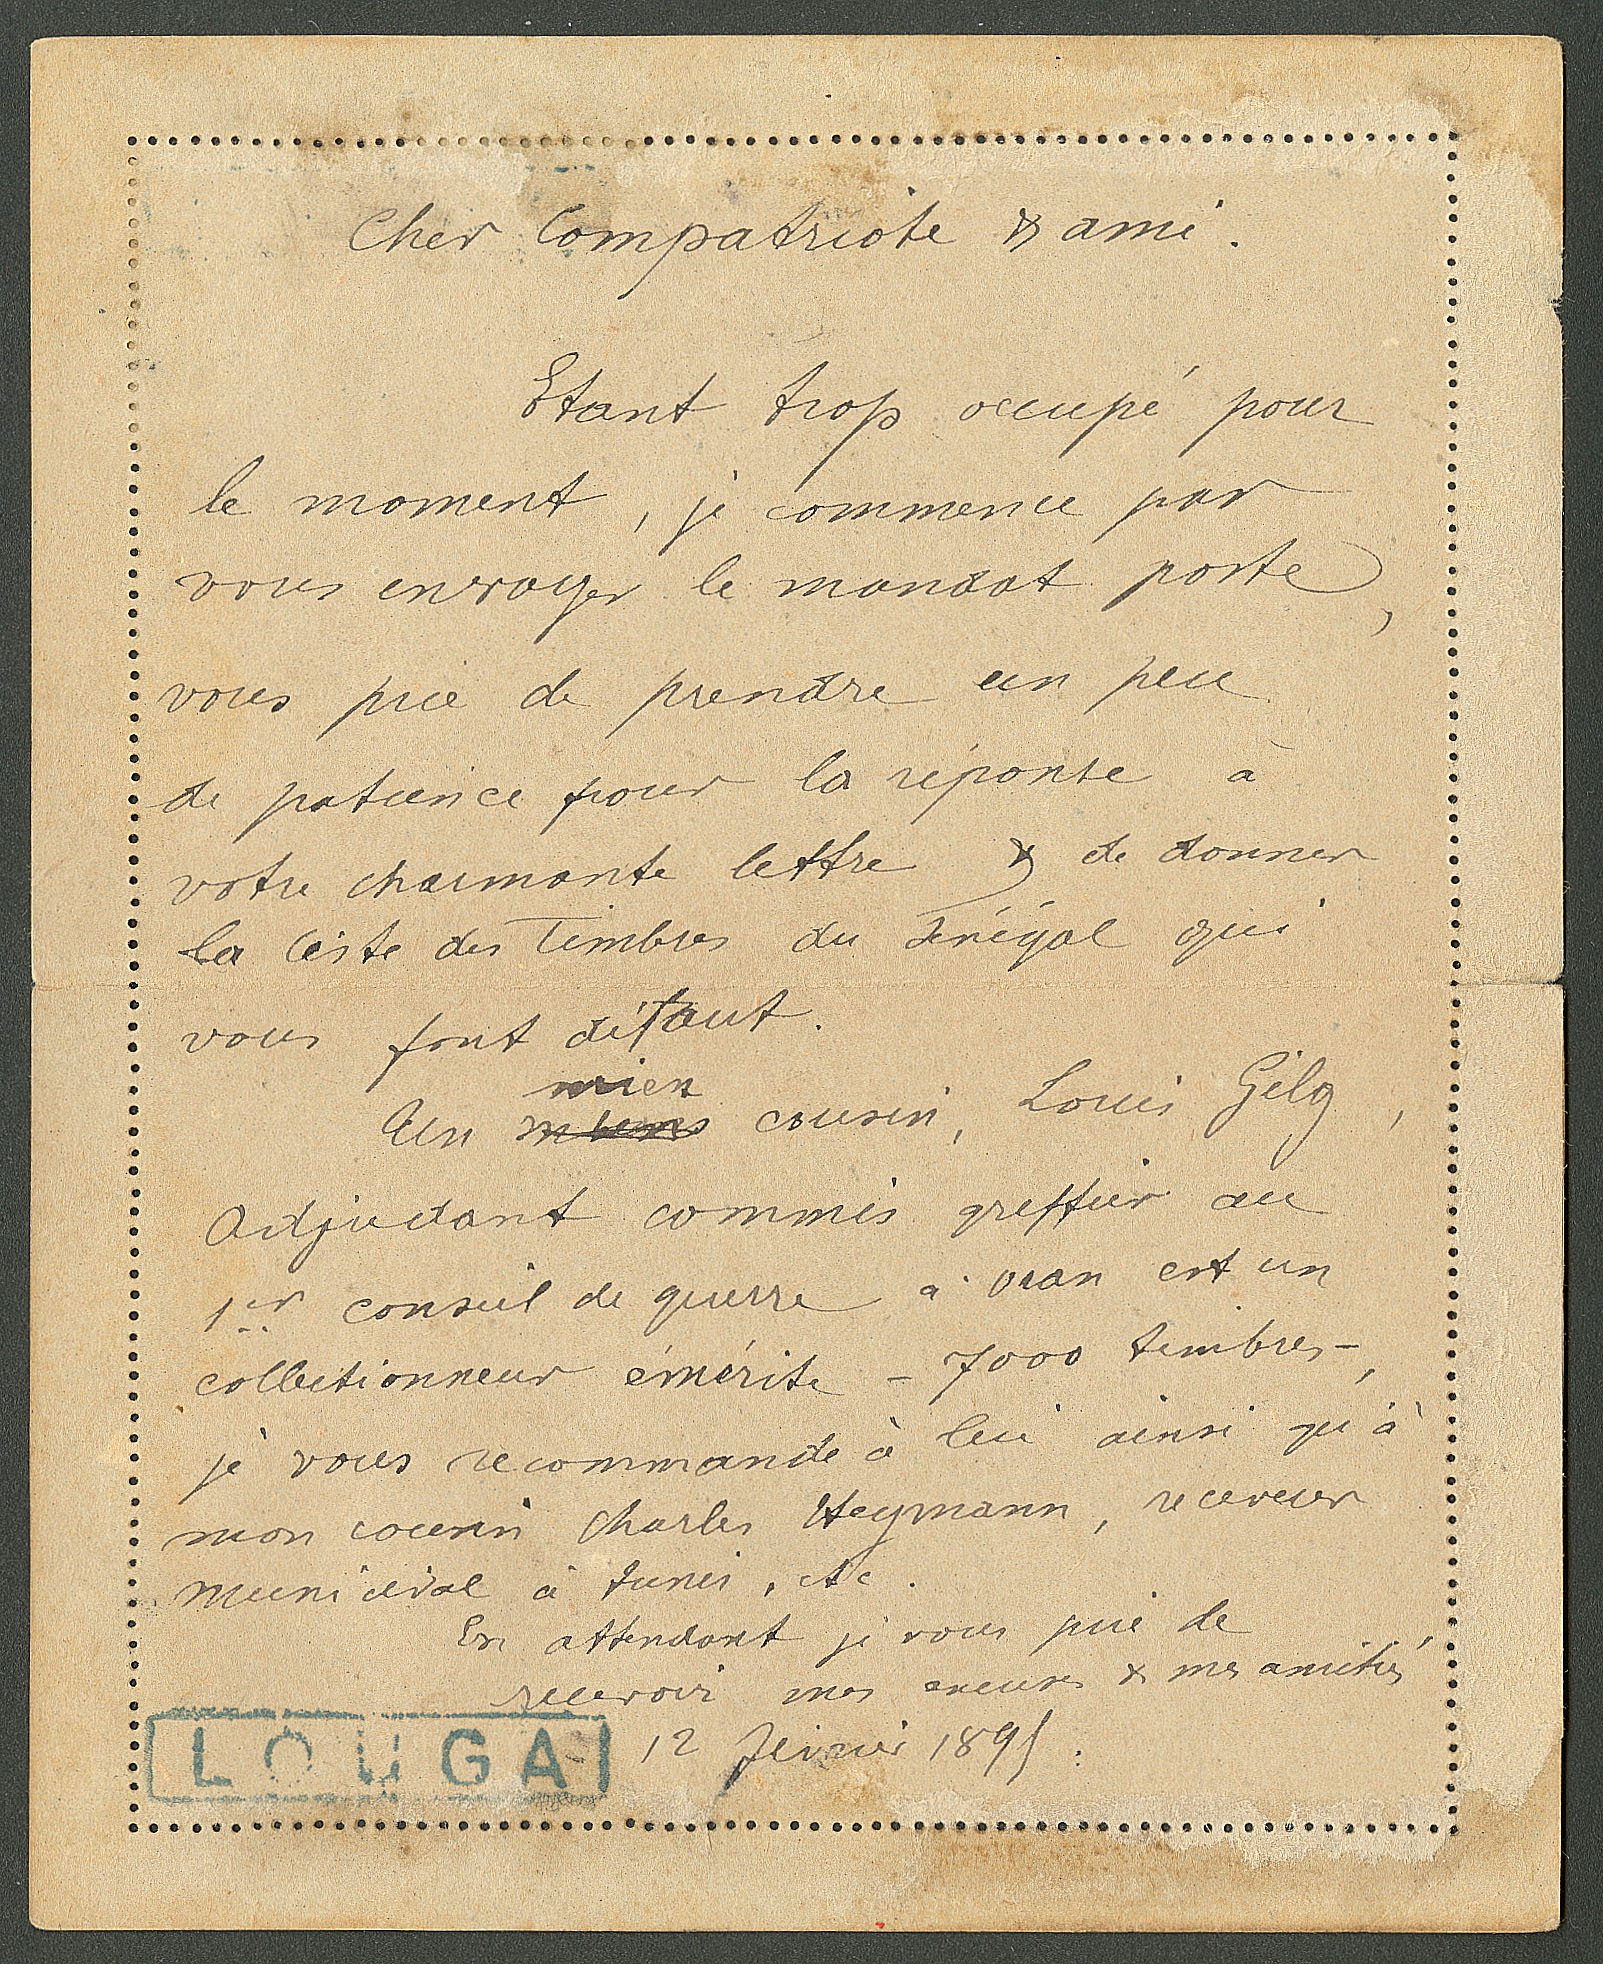 Cher Compatriote & ami.
Etant trop occupé pour
le moment, je commence par
vous envoyer le mandat poste,
vous prie de prendre un peu
de patience pour la réponse à
votre charmante lettre & de donner
la liste des Timbres du Sénégal qui
vous font défaut.
mien
Un cousin, Louis Gilg,
Adjudant commis greffier au
1er conseil de guerre à Oran est un
collectionneur émérite - 7000 timbres -,
je vous recommande à lui ainsi qu'à
mon cousin Charles Heymann, receveur
municipal à Tunis, etc.
En attendant je vous prie de
recevoir mes excuses & mes amitiés
LOUGA 12 février 1895.